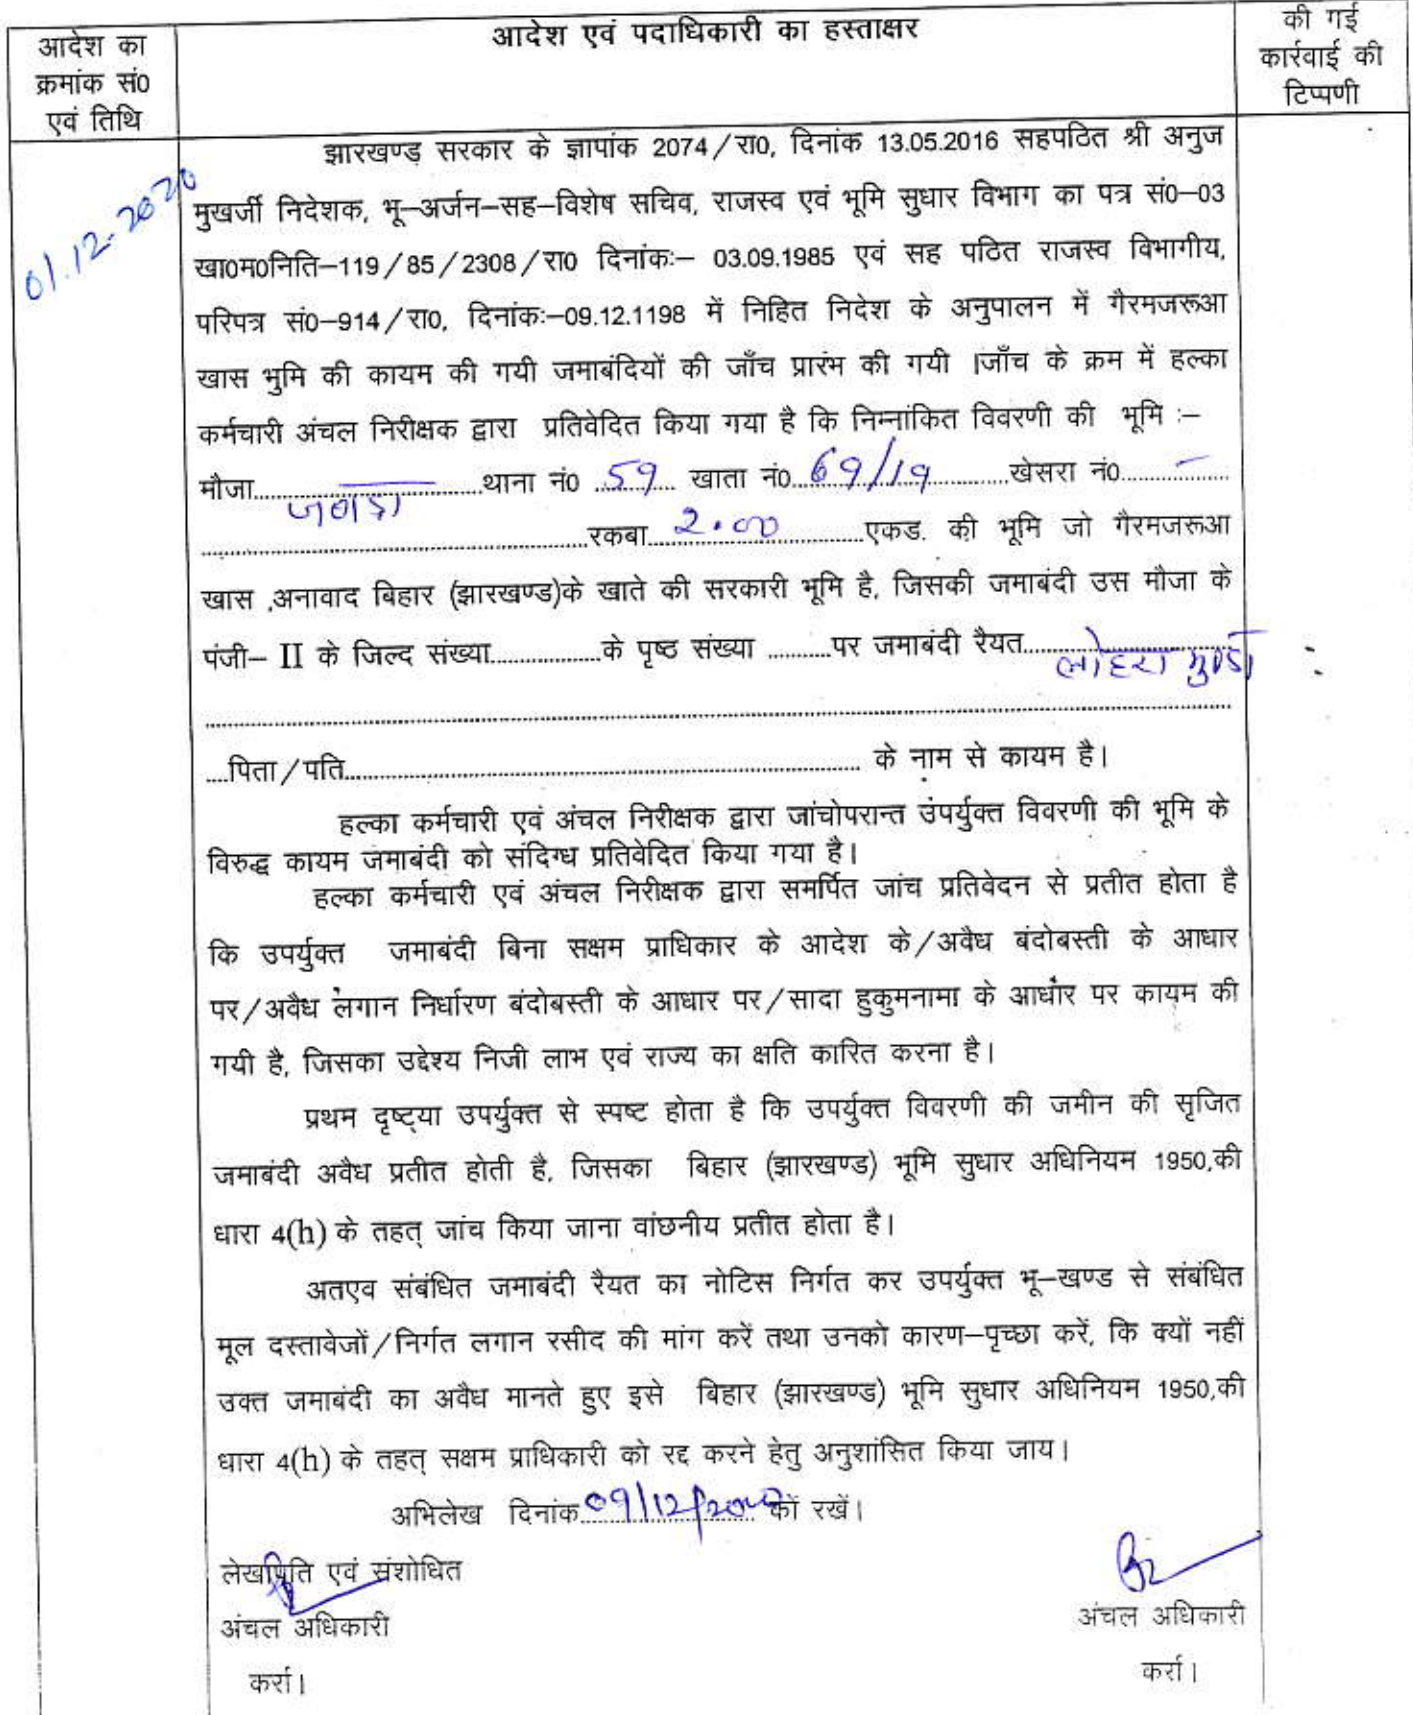 आदेश का
क्रमांक सं0
एवं तिथि
आदेश एवं पदाधिकारी का हस्ताक्षर
की गई
कार्रवाई की
टिप्पणी
01.12.2020
झारखण्ड़ सरकार के ज्ञापांक 2074/रा0, दिनांक 13.05.2016 सहपठित श्री अनुज
मुखर्जी निदेशक, भू–अर्जन–सह–विशेष सचिव, राजस्व एवं भूमि सुधार विभाग का पत्र सं0–03
खा0म0निति–119/85/2308/रा0 दिनांकः– 03.09.1985 एवं सह पठित राजस्व विभागीय,
परिपत्र सं0–914/रा0, दिनांकः–09.12.1198 में निहित निदेश के अनुपालन में गैरमजरूआ
खास भुमि की कायम की गयी जमाबंदियों की जाँच प्रारंभ की गयी ।जाँच के क्रम में हल्का
कर्मचारी अंचल निरीक्षक द्वारा प्रतिवेदित किया गया है कि निम्नांकित विवरणी की भूमि :–
मौजा....................थाना नं0 ..59.. खाता नं0..69/19..........खेसरा नं0....–....
....................रकबा...2.00.........एकड. की भूमि जो गैरमजरूआ
खास ,अनावाद बिहार (झारखण्ड)के खाते की सरकारी भूमि है, जिसकी जमाबंदी उस मौजा के
पंजी– II के जिल्द संख्या.............के पृष्ठ संख्या ..........पर जमाबंदी रैयत......लोहरा मुण्डा
....................
....पिता/पति.................... के नाम से कायम है।
हल्का कर्मचारी एवं अंचल निरीक्षक द्वारा जांचोपरान्त उंपर्युक्त विवरणी की भूमि के
विरुद्ध कायम जमाबंदी को संदिग्ध प्रतिवेदित किया गया है।
हल्का कर्मचारी एवं अंचल निरीक्षक द्वारा समर्पित जांच प्रतिवेदन से प्रतीत होता है
कि उपर्युक्त जमाबंदी बिना सक्षम प्राधिकार के आदेश के/अवैध बंदोबस्ती के आधार
पर/अवैध लगान निर्धारण बंदोबस्ती के आधार पर/सादा हुकुमनामा के आधार पर कायम की
गयी है, जिसका उद्देश्य निजी लाभ एवं राज्य का क्षति कारित करना है।
प्रथम दृष्ट्या उपर्युक्त से स्पष्ट होता है कि उपर्युक्त विवरणी की जमीन की सृजित
जमाबंदी अवैध प्रतीत होती है, जिसका बिहार (झारखण्ड) भूमि सुधार अधिनियम 1950,की
धारा 4(h) के तहत् जांच किया जाना वांछनीय प्रतीत होता है।
अतएव संबंधित जमाबंदी रैयत का नोटिस निर्गत कर उपर्युक्त भू–खण्ड से संबंधित
मूल दस्तावेजों/निर्गत लगान रसीद की मांग करें तथा उनको कारण–पृच्छा करें, कि क्यों नहीं
उक्त जमाबंदी का अवैध मानते हुए इसे बिहार (झारखण्ड) भूमि सुधार अधिनियम 1950,की
धारा 4(h) के तहत् सक्षम प्राधिकारी को रद्द करने हेतु अनुशांसित किया जाय।
अभिलेख दिनांक..09/12/2020..कों रखें।
लेखापिति एवं संशोधित
अंचल अधिकारी
कर्रा।
अंचल अधिकारी
कर्रा।